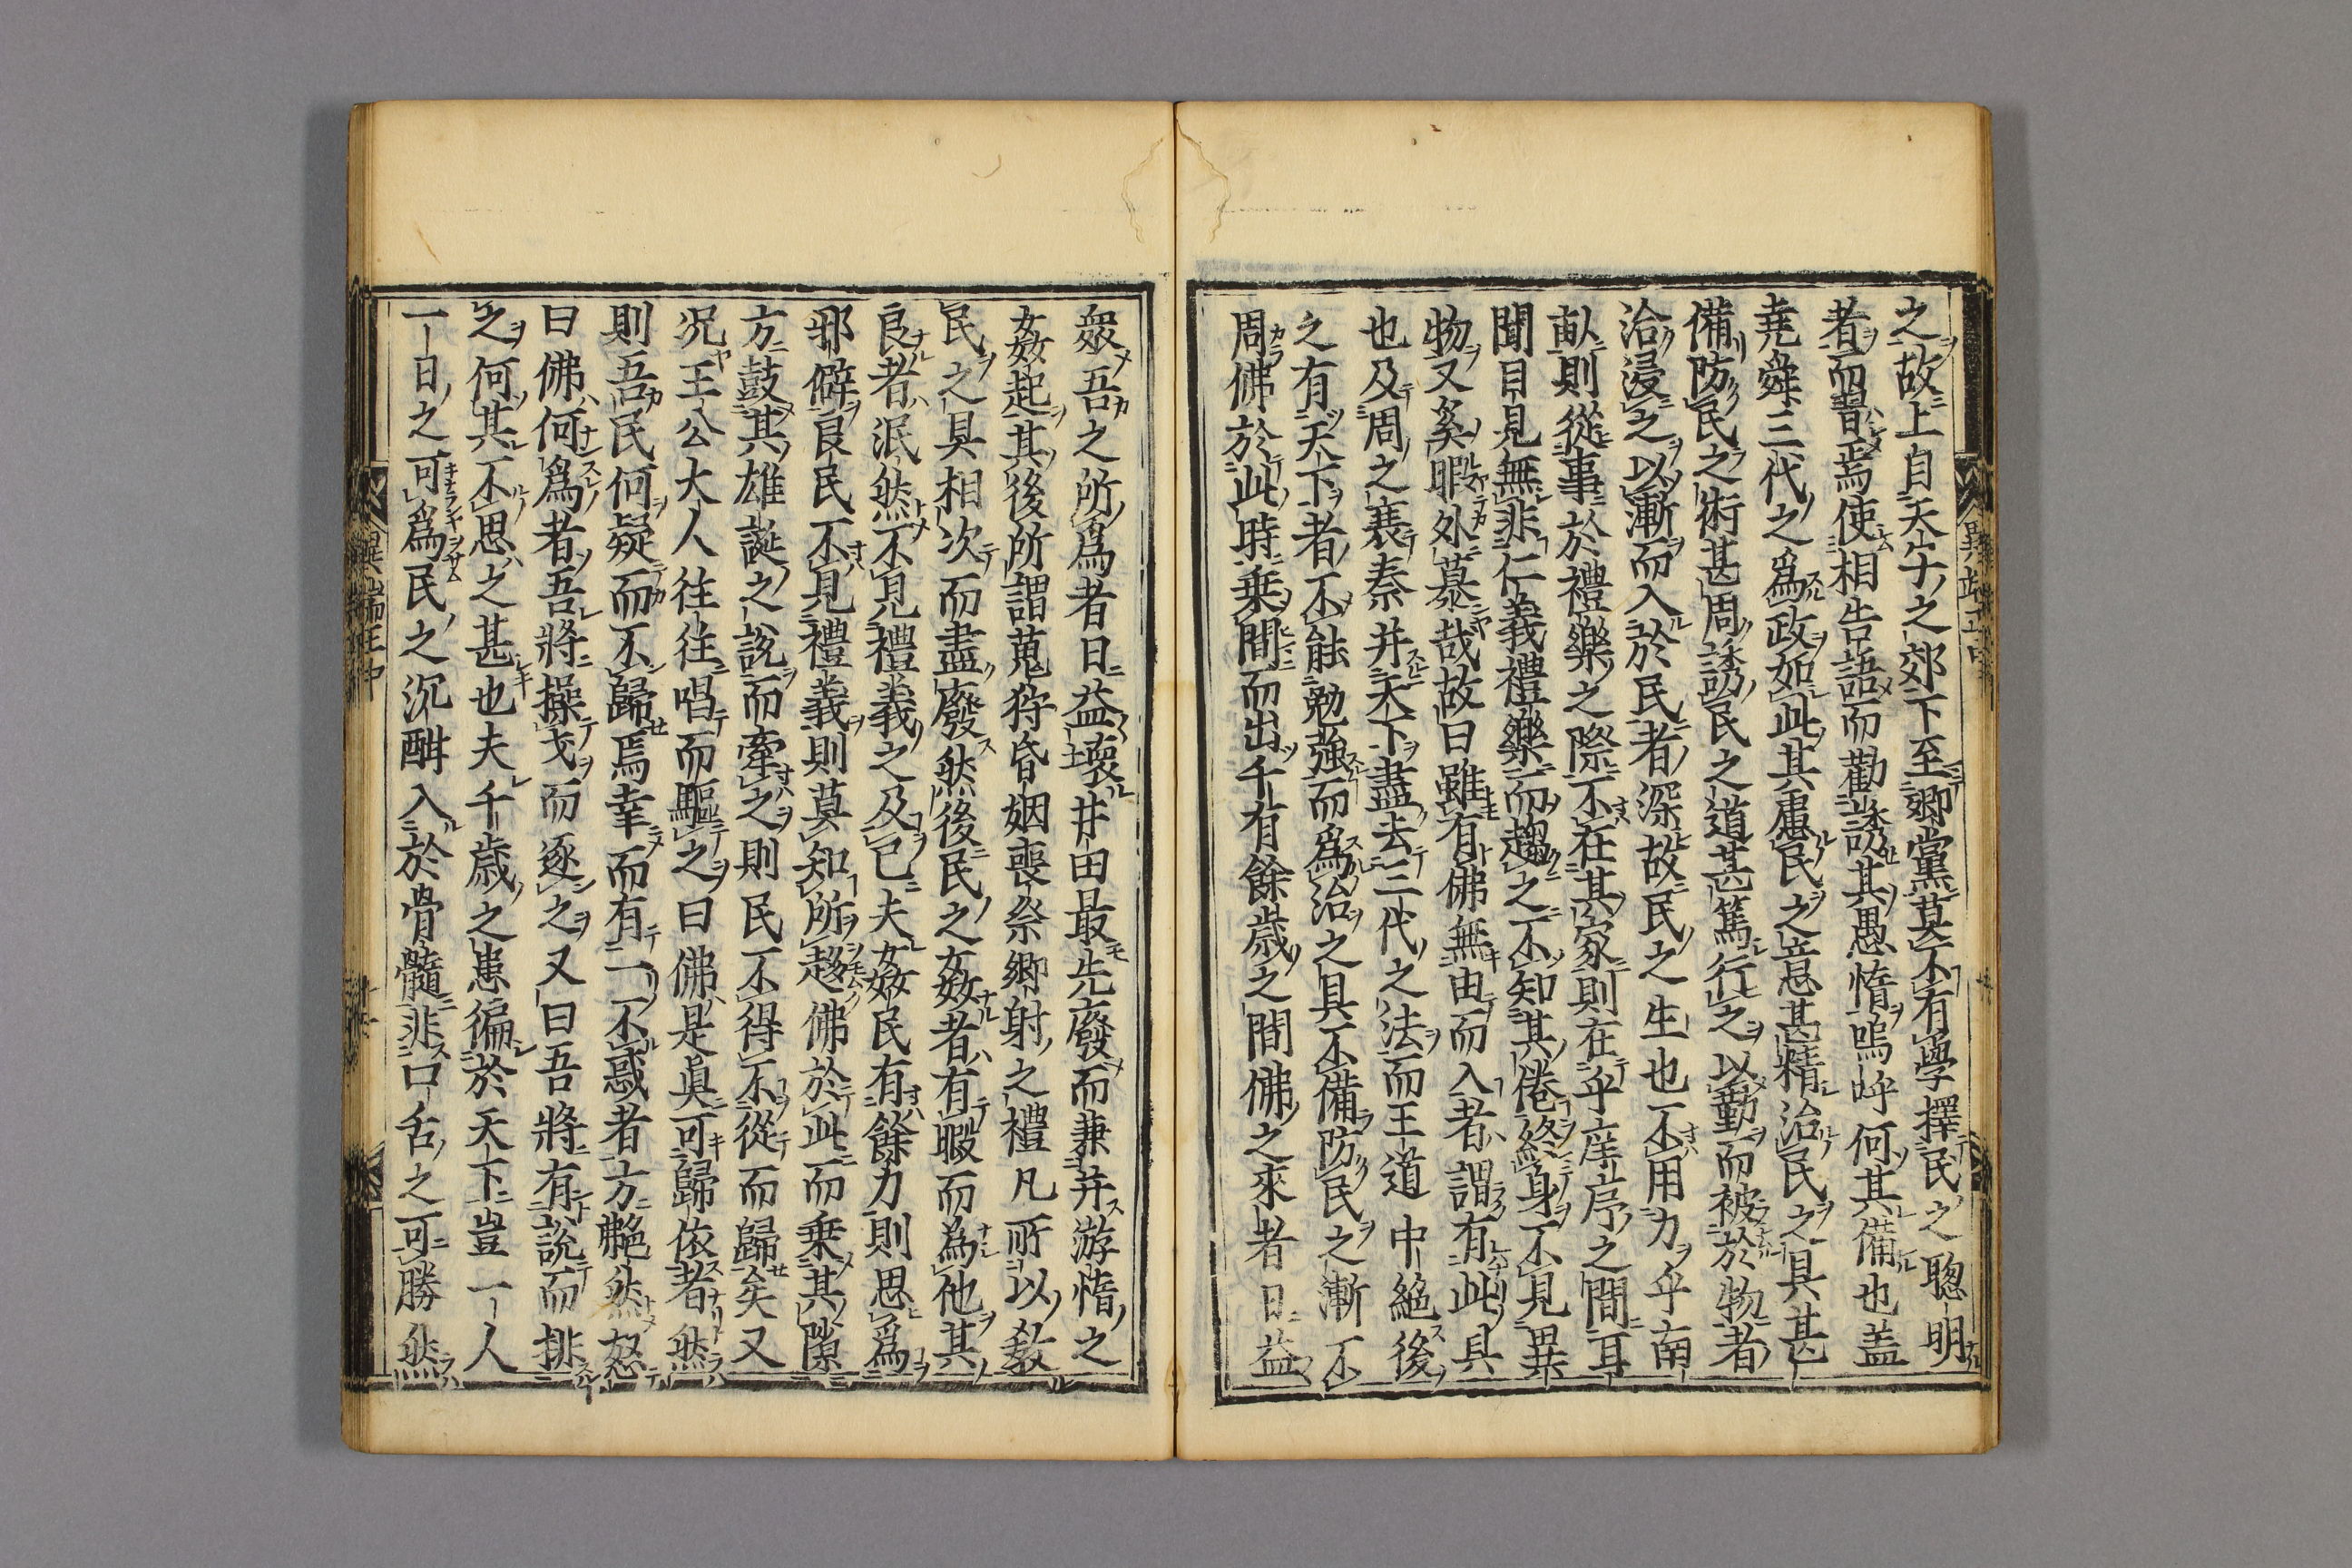 之故上自天子之郊下至鄉黨莫不有學擇民之聰明
者而習焉使相告語而勸誘其愚惰嗚呼何其備也盖
堯舜三代之爲政如此其慮民之意甚精治民之具甚
備防民之術甚周誘民之道甚篤行之以勤而被於物者
洽浸之以漸而入於民者深故民之生也不用力乎南
畝則從事於禮樂之際不在其家則在乎庠序之間耳
聞目見無非仁義禮樂而趨之不知其倦終身不見異
物又奚暇外慕哉故曰雖有佛無由而入者謂有此具
也及周之衰秦并天下盡去三代之法而王道中絕後
之有天下者不能勉強而爲治之具不備防民之漸不
周佛於此時乗間而出千有餘歲之間佛之來者日益
衆吾之所爲者日益壞井田最先廢而兼并游惰之
姦起其後所謂蒐狩昏姻喪祭鄉射之禮凡所以敎
民之具相次而盡廢然後民之姦者有暇而為他其
良者泯然不見禮義之及已夫姦民有餘力則思爲
邪僻良民不見禮義則莫知所趍佛於此而乗其隙
方鼓其雄誕之說而牽之則民不得不從而歸矣又
况王公大人往往唱而驅之曰佛是眞可歸依者然
則吾民何疑而不歸焉幸而有一不惑者方艴然怒
曰佛何爲者吾將操戈而逐之又曰吾將有說而排
之何其不思之甚也夫千歲之患徧於天下豈一人
一日之可爲民之沉酣入於骨髓非口舌之可勝然
異端正中